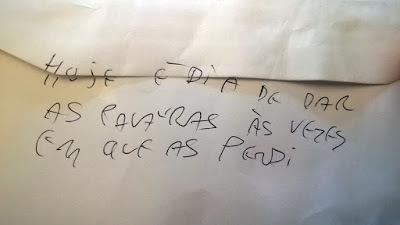 HOJE É DIA DE DAR
AS PALAVRAS ÀS VEZES
EM QUE AS PERDI